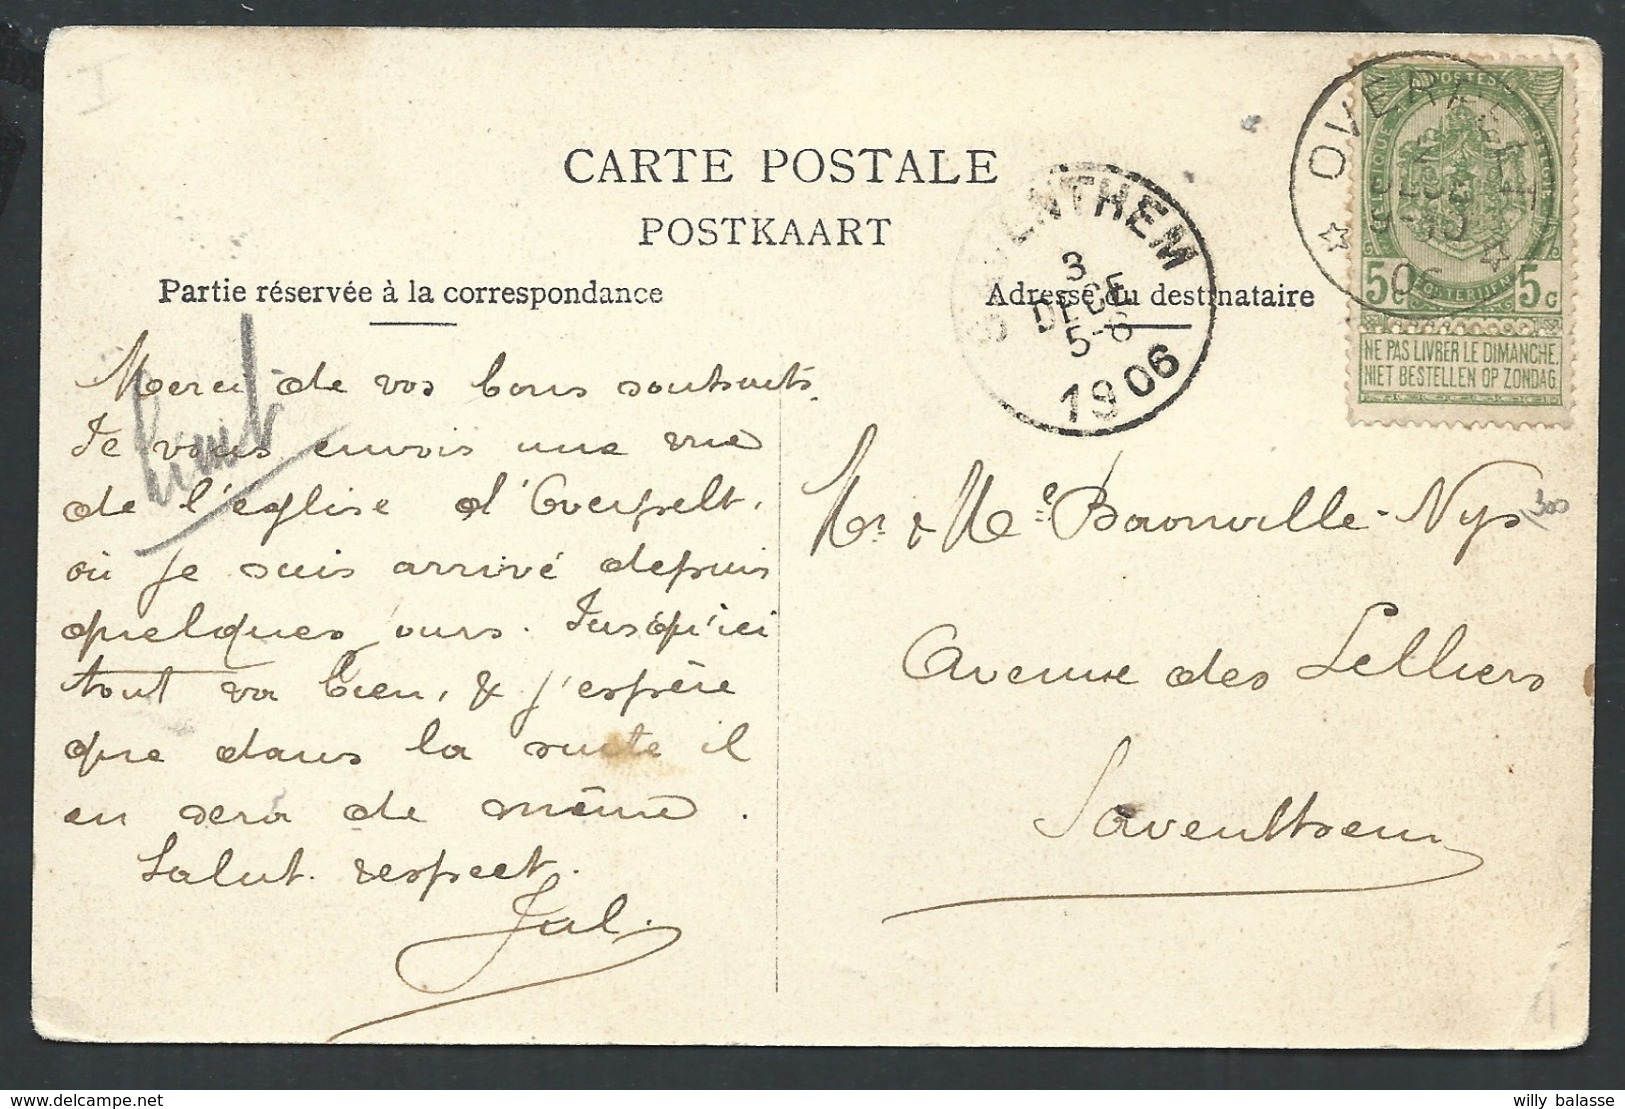 CARTE POSTALE
POSTKAART
Partie réservée à la correspondance
Adresse du destinataire
Merci de vos bons souhaits.
Je vous envois une vue
de l'église d'Overpelt,
où je suis arrivé depuis
quelques jours. Jusqu'ici
tout va bien, & j'espère
que dans la suite il
en sera de même.
Salut. respect.
Jul.
Mr. & Me. Baonville-Nys
300
Avenue des Lelliers
Saventhem
SAVENTHEM
3
DECE
5-6
1906
OVERPELT
06
POSTES
BELGIQUE
BELGIË
POSTERIJEN
5c 5c
NE PAS LIVRER LE DIMANCHE.
NIET BESTELLEN OP ZONDAG.
Delcampe.net
willy balasse